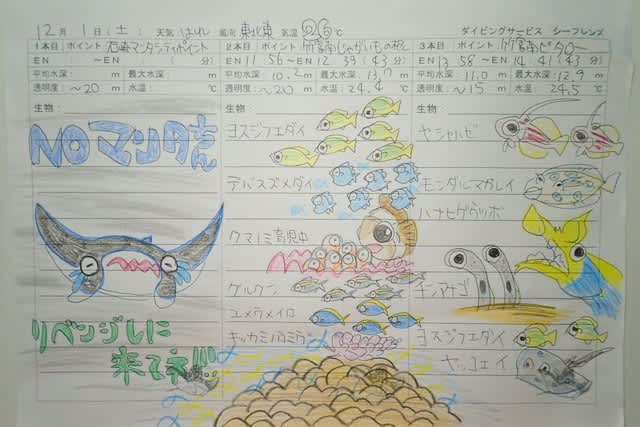 12月 1日(土) 天気 はれ 風向 東北東 気温 26℃ ダイビングサービス シーフレンズ
1本目 ポイント 石崎マンタシティポイント
EN : ～EN : ( 分)
平均水深: m 最大水深: m
透明度: ～20 m 水温: ℃
生物:
NO マンタさん
リベンジしに
来てネ!!!
2本目 ポイント 竹富南じゃがいもの根
EN 11 56～EN 12 39 (43分)
平均水深: 10.2m 最大水深: 13.0m
透明度: ～20m 水温: 24.4℃
生物:
ヨスジフエダイ
デバスズメダイ
クマノミ育児中
グルクン
ユメウメイロ
キッカミノウミウシ
3本目 ポイント 竹富南ピタロー
EN 13 58～EN 14 41 (43分)
平均水深: 11.0m 最大水深: 12.9m
透明度: ～15m 水温: 24.5℃
生物:
ヤシャハゼ
モンダルマガレイ
ハナヒゲウツボ
チンアナゴ
ヨスジフエダイ
ヤッコエイ